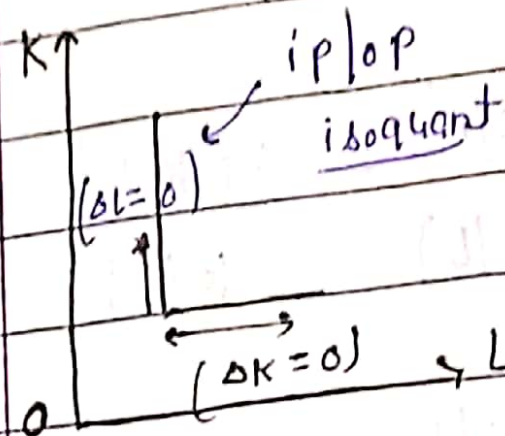 K
ip/op
isoquant
(ΔL=0)
(ΔK=0)
L
O